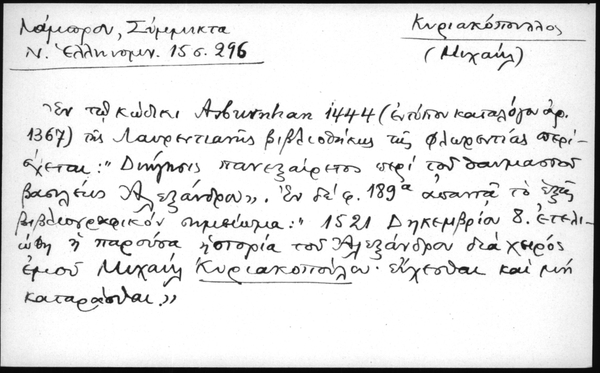 Λάμπρου, Σύμμικτα
Ν. Ἑλληνομν. 15 σ. 296
Κυριακόπουλος
(Μιχαήλ)
Ἐν τῷ κώδικι Ashburnham 1444 (ἐντύπου καταλόγου ἀρ.
1367) τῆς Λαυρεντιανῆς βιβλιοθήκης τῆς Φλωρεντίας περι-
έχεται: "Διήγησις πανεξαίρετος περὶ τοῦ θαυμαστοῦ
βασιλέως Ἀλεξάνδρου». Ἐν δὲ φ. 189α ἀπαντᾷ τὸ ἑξῆς
βιβλιογραφικόν σημείωμα: "1521 Δηκεμβρίου 8. ἐτελι-
ώθη ἡ παροῦσα ἡστορία τοῦ Ἀλεξάνδρου διὰ χειρός
ἐμοῦ Μιχαήλ Κυριακοπούλου· εὔχεσθαι καὶ μή
καταρᾶσθαι.»